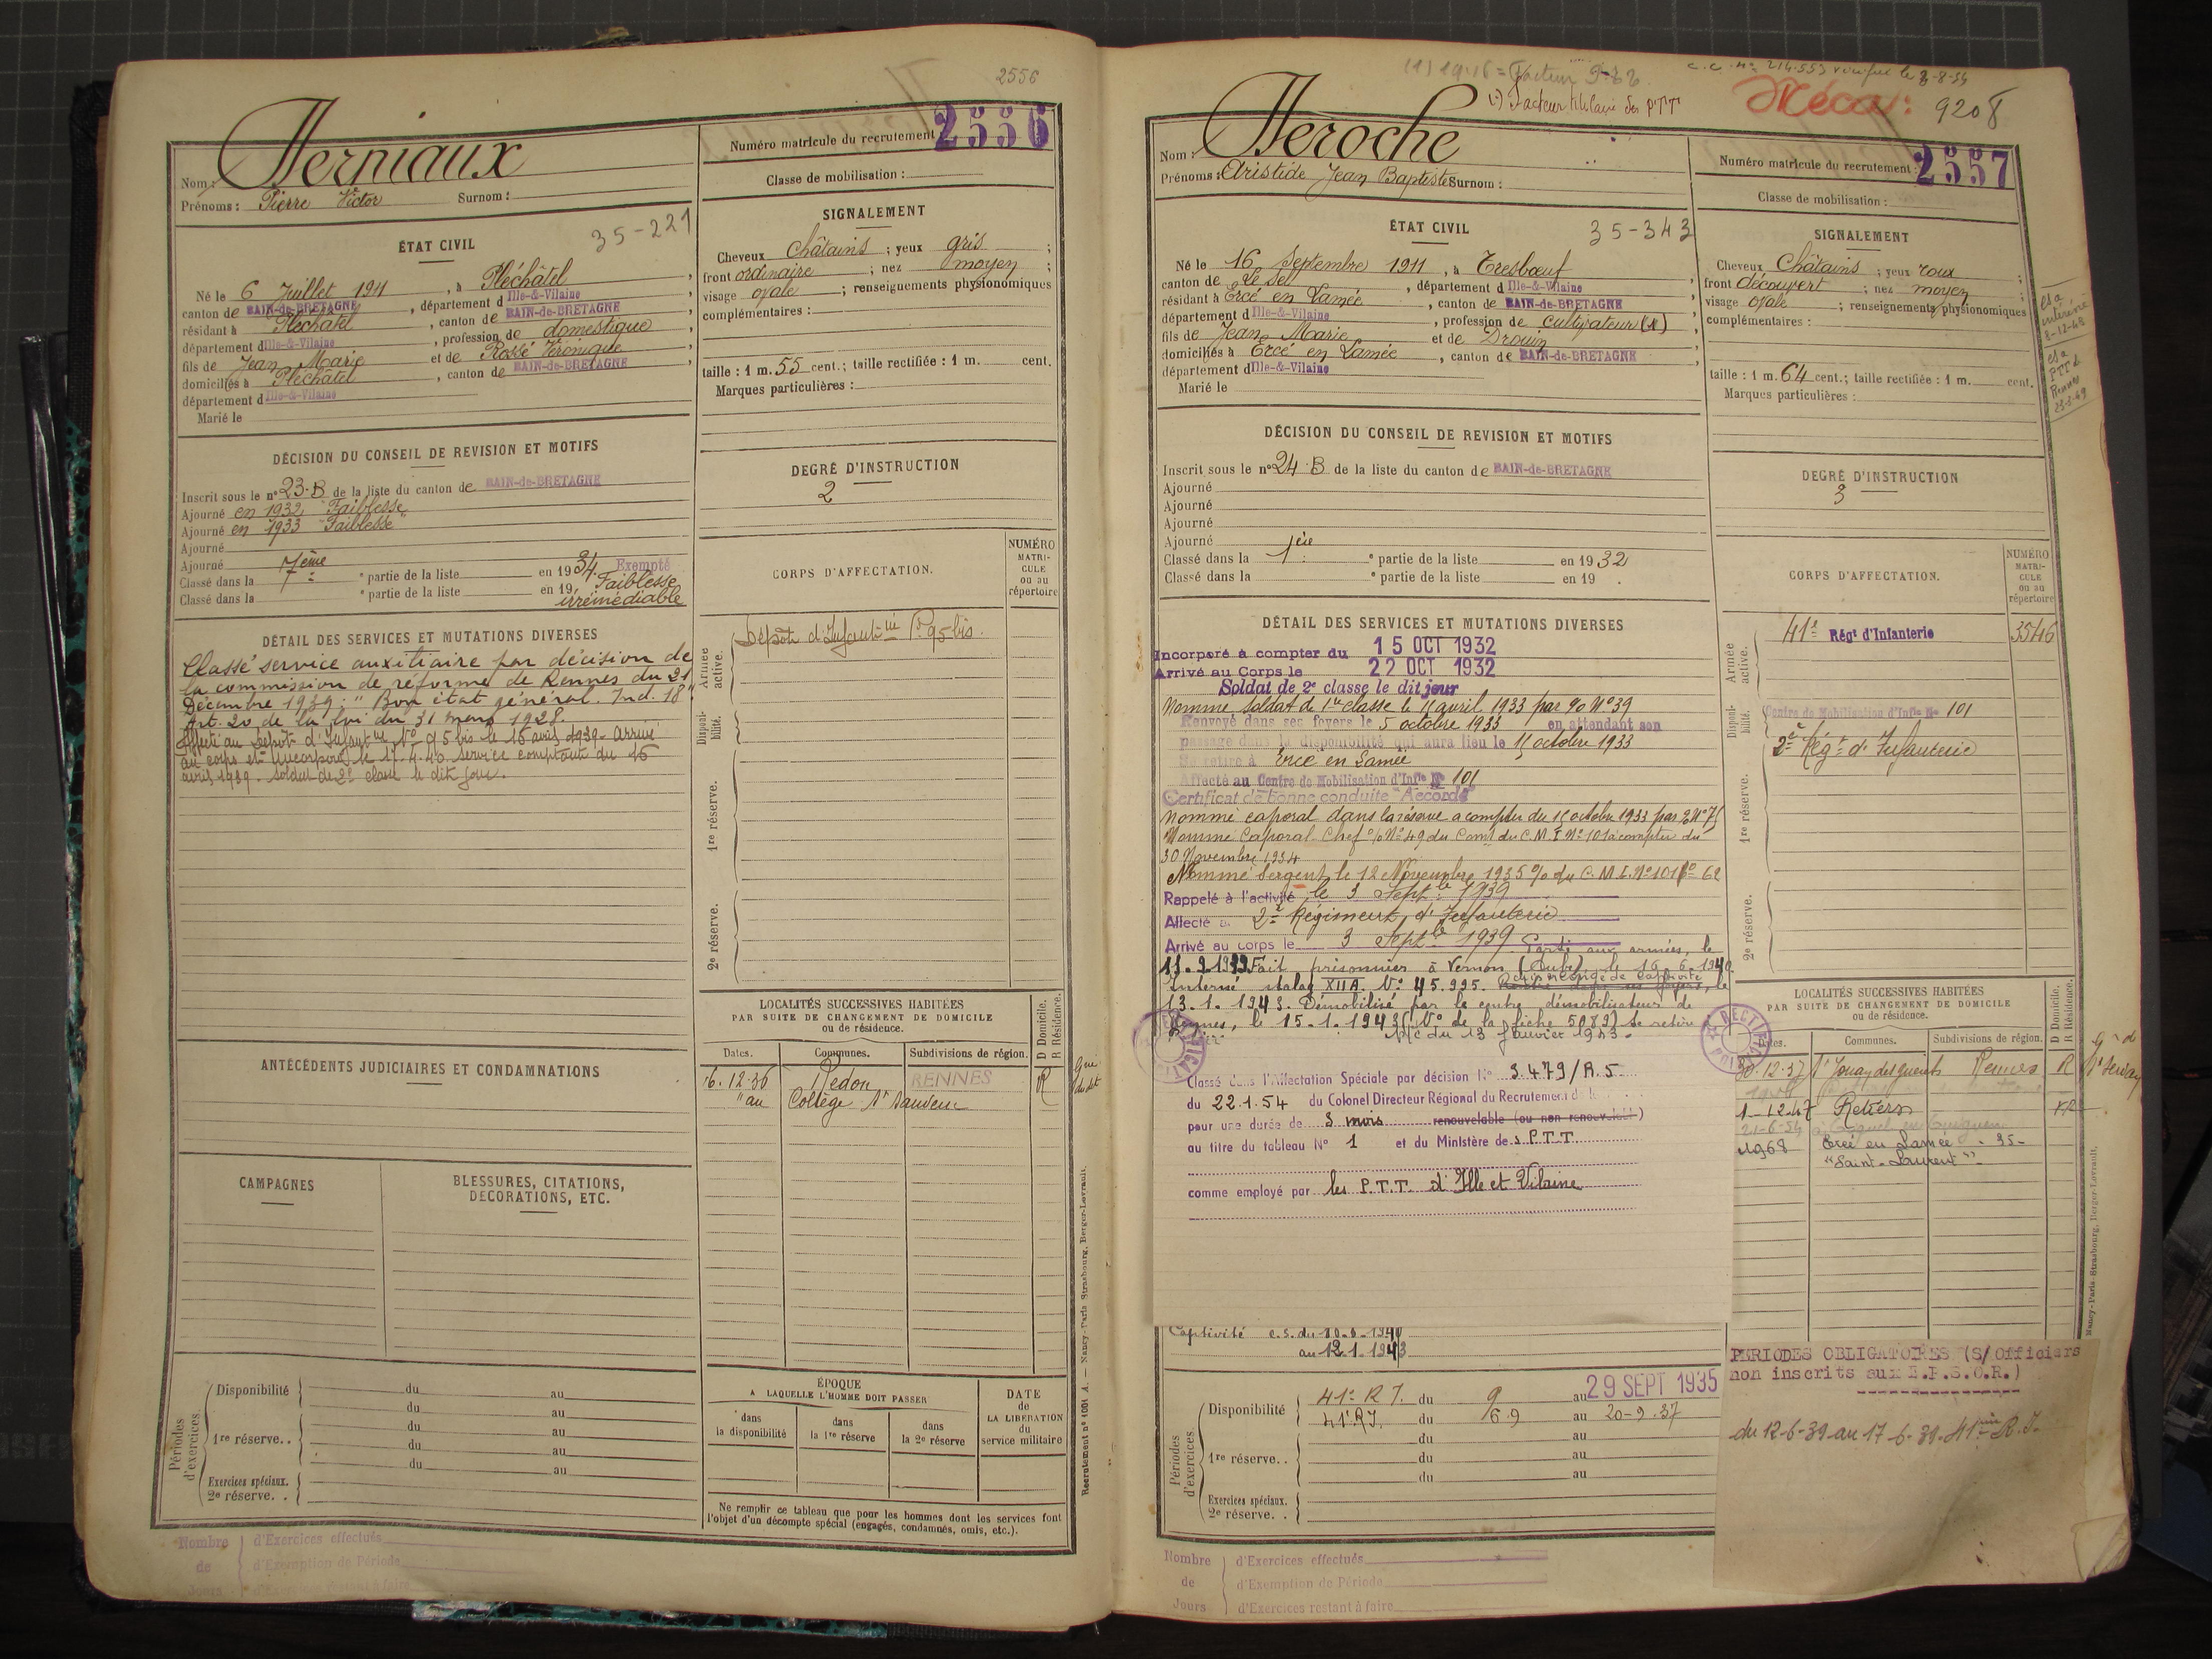 2556
Nom : Herniaux
Prénoms : Pierre Victor Surnom :
Numéro matricule du recrutement 2556
Classe de mobilisation :
ÉTAT CIVIL
35-221
Né le 6 Juillet 1911, à Pléchâtel,
canton de BAIN-de-BRETAGNE, département d Ille-&-Vilaine,
résidant à Pléchâtel, canton de BAIN-de-BRETAGNE,
département d Ille-&-Vilaine, profession de domestique,
fils de Jean Marie et de Rossé Véronique,
domiciliés à Pléchâtel, canton de BAIN-de-BRETAGNE,
département d Ille-&-Vilaine
Marié le
SIGNALEMENT
Cheveux Châtains ; yeux gris ;
front ordinaire ; nez moyen ;
visage ovale ; renseignements physionomiques
complémentaires :
taille : 1 m. 55 cent.; taille rectifiée : 1 m. cent.
Marques particulières :
DÉCISION DU CONSEIL DE REVISION ET MOTIFS
Inscrit sous le n° 23-B de la liste du canton de BAIN-de-BRETAGNE
Ajourné en 1932 "Faiblesse"
Ajourné en 1933 "Faiblesse"
Ajourné
Ajourné
Classé dans la 7ème partie de la liste en 1934 Exempté
Classé dans la e partie de la liste en 19 Faiblesse
irrémédiable
DEGRÉ D'INSTRUCTION
2
CORPS D'AFFECTATION.
NUMÉRO
MATRI-
CULE
ou au
répertoire
Armée active.
Dépôt d'Infanterie N° 95 bis.
Disponi-
bilité.
1re réserve.
2e réserve.
DÉTAIL DES SERVICES ET MUTATIONS DIVERSES
Classé service auxiliaire par décision de
la commission de réforme de Rennes du 21
Décembre 1939: "Bon état général. Ind. 18"
Art. 20 de la loi du 31 mars 1928.
Affecté au Dépôt d'Infanterie N° 95 bis le 16 avril 1939. Arrivé
au corps et incorporé le 17.4.40. service comptant du 16
avril 1939. Soldat de 2e classe le dit jour.
ANTÉCÉDENTS JUDICIAIRES ET CONDAMNATIONS
CAMPAGNES
BLESSURES, CITATIONS,
DÉCORATIONS, ETC.
LOCALITÉS SUCCESSIVES HABITÉES
PAR SUITE DE CHANGEMENT DE DOMICILE
ou de résidence.
D Domicile.
R Résidence.
Dates. Communes. Subdivisions de région.
6.12.36 Redon RENNES R
"au Collège St Sauveur
Périodes
d'exercices.
Disponibilité du au
du au
1re réserve.. du au
du au
du au
Exercices spéciaux.
2e réserve. .
ÉPOQUE
A LAQUELLE L'HOMME DOIT PASSER
dans
la disponibilité
dans
la 1re réserve
dans
la 2e réserve
DATE
de
LA LIBÉRATION
du
service militaire
Ne remplir ce tableau que pour les hommes dont les services font
l'objet d'un décompte spécial (engagés, condamnés, omis, etc.).
Recrutement n° 1001 A. — Nancy-Paris-Strasbourg, Berger-Levrault.
Nombre
de
Jours
d'Exercices effectués
d'Exemption de Période
d'Exercices restant à faire
(1) Facteur titulaire des PTT
Méca: 9208
Nom : Heroche
Prénoms : Aristide Jean Baptiste Surnom :
Numéro matricule du recrutement : 2557
Classe de mobilisation :
ÉTAT CIVIL
35-343
Né le 16 Septembre 1911, à Tresbœuf,
canton de Le Sel, département d Ille-&-Vilaine,
résidant à Ercé en Lamée, canton de BAIN-de-BRETAGNE,
département d Ille-&-Vilaine, profession de cultivateur (1),
fils de Jean Marie et de Drouin,
domiciliés à Ercé en Lamée, canton de BAIN-de-BRETAGNE,
département d Ille-&-Vilaine
Marié le
SIGNALEMENT
Cheveux Châtains ; yeux roux ;
front découvert ; nez moyen ;
visage ovale ; renseignements physionomiques
complémentaires :
taille : 1 m. 64 cent.; taille rectifiée : 1 m. cent.
Marques particulières :
PTT à
Rennes
DÉCISION DU CONSEIL DE REVISION ET MOTIFS
Inscrit sous le n° 24-B de la liste du canton de BAIN-de-BRETAGNE
Ajourné
Ajourné
Ajourné
Ajourné
Classé dans la 1ère partie de la liste en 1932
Classé dans la e partie de la liste en 19 .
DEGRÉ D'INSTRUCTION
3
CORPS D'AFFECTATION.
NUMÉRO
MATRI-
CULE
ou au
répertoire
Armée active.
41e Régt d'Infanterie 3546
Disponi-
bilité.
Centre de Mobilisation d'Infie N° 101
2e Régt d'Infanterie
1re réserve.
2e réserve.
DÉTAIL DES SERVICES ET MUTATIONS DIVERSES
Incorporé à compter du 15 OCT 1932
Arrivé au Corps le 22 OCT 1932
Soldat de 2e classe le dit jour
Nommé soldat de 1re classe le 15 avril 1933 par % N° 39
Renvoyé dans ses foyers le 5 octobre 1933 en attendant son
passage dans la disponibilité qui aura lieu le 15 octobre 1933
Se retire à Ercé en Lamée
Affecté au Centre de Mobilisation d'Infie N° 101
Certificat de bonne conduite "Accordé"
Nommé caporal dans la réserve à compter du 15 octobre 1933 par % N° 75
Nommé Caporal Chef % N° 49 du Comt du C.M.I N° 101 à compter du
30 Novembre 1934
Nommé Sergent le 12 Novembre 1935 % du C.M.I. N° 101 N° 62
Rappelé à l'activité le 3 Septbre 1939
Affecté au 2e Régiment d'Infanterie
Arrivé au corps le 3 Septbre 1939 Parti aux armées, le
11.9.1939 Fait prisonnier à Vernon (Aube) le 16.6.1940
Interné stalag XIIA. N° 45.995. Rentré dans ses foyers, le
13.1.1943. Démobilisé par le centre démobilisateur de
Rennes, le 15.1.1943 (N° de la fiche 5089) Se retire
du 13 Janvier 1943.
Classé dans l'Affectation Spéciale par décision N° 3.479/A.5
du 22.1.54 du Colonel Directeur Régional du Recrutement
pour une durée de 3 mois renouvelable (ou non renouvelable)
au titre du tableau N° 1 et du Ministère des P.T.T.
comme employé par les P.T.T. d'Ille et Vilaine
Captivité c.s. du
au 12.1.1943
LOCALITÉS SUCCESSIVES HABITÉES
PAR SUITE DE CHANGEMENT DE DOMICILE
ou de résidence.
D Domicile.
R Résidence.
Dates. Communes. Subdivisions de région.
30.12.37 St Jouan des Guérets Rennes R
1-12.47 Retiers
1968 Ercé en Lamée - 35-
"Saint-Laurent"
Périodes
d'exercices.
Disponibilité 41e R I. du 9 au 29 SEPT 1935
41e RI. du 6.9 au 20-9.37
du au
1re réserve.. du au
du au
Exercices spéciaux.
2e réserve. .
PERIODES OBLIGATOIRES (S/Officiers
non inscrits aux E.P.S.O.R.)
du 12-6-39 au 17-6-39-41ème R.I.
Nancy-Paris-Strasbourg, Berger-Levrault.
Nombre
de
Jours
d'Exercices effectués
d'Exemption de Période
d'Exercices restant à faire